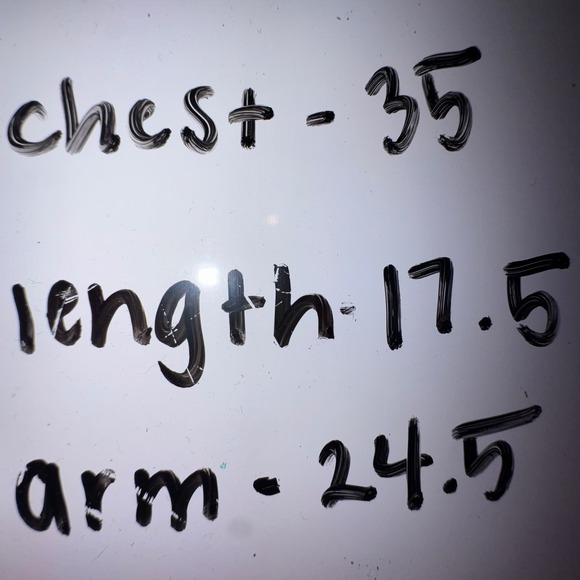 chest - 35
length - 17.5
arm - 24.5